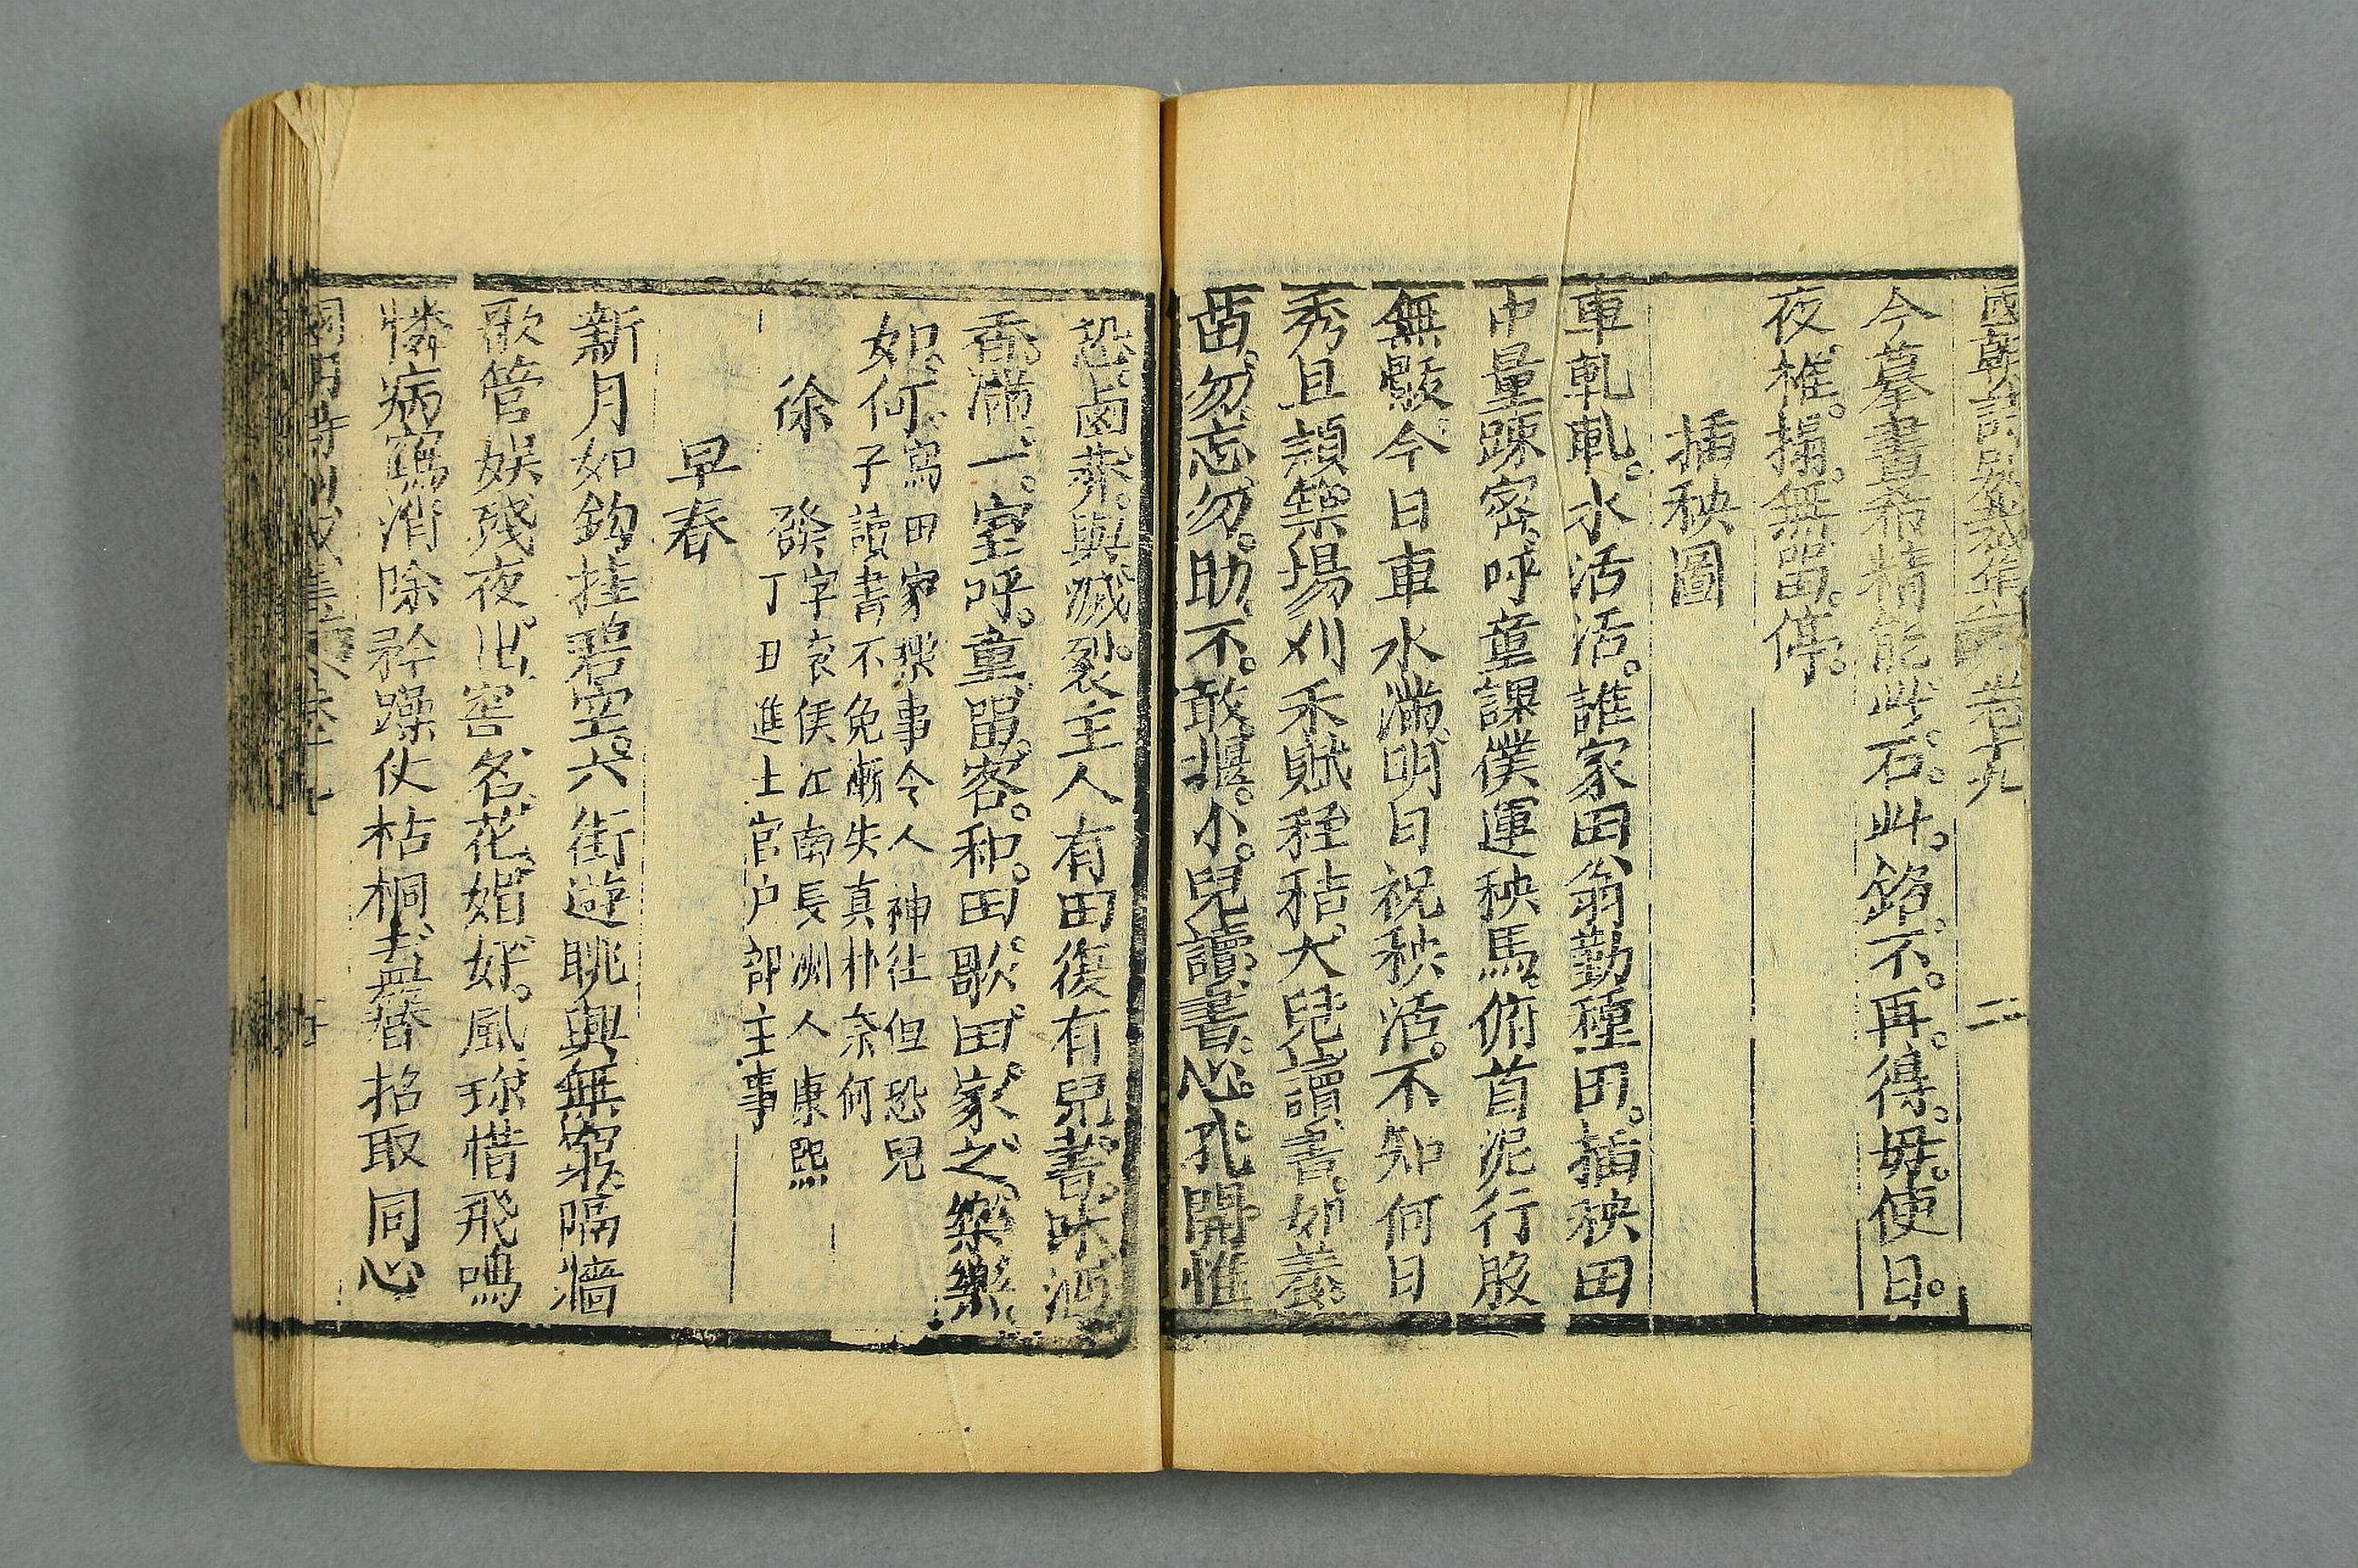 國朝詩別裁集 卷十九 二
今摹畫希精能此石此銘不再得毋使日
夜椎搨無畱停
插秧圖
車軋軋水活活誰家田翁勤種田插秧田
中量踈密呼童課僕運秧馬俯首泥行股
無骸今日車水滿明日祝秧活不知何日
秀且穎築場刈禾賦秷秸大兒讀書如養
苗勿忘勿助不敢揠小兒讀書心孔開惟
恐鹵莽與滅裂主人有田復有兒書味酒
香滿一室呼童畱客和田歌田家之樂樂
如何寫田家樂事令人神往但恐兒
子讀書不免漸失真朴奈何
徐 葆字哀侯江南長洲人康熙
丁丑進士官户部主事
早春
新月如鈎挂碧空六街遊眺興無窮隔牆
歌管娱殘夜出窖名花媚好風珎惜飛鳴
憐病鶴消除矜躁仗枯桐盍簪招取同心